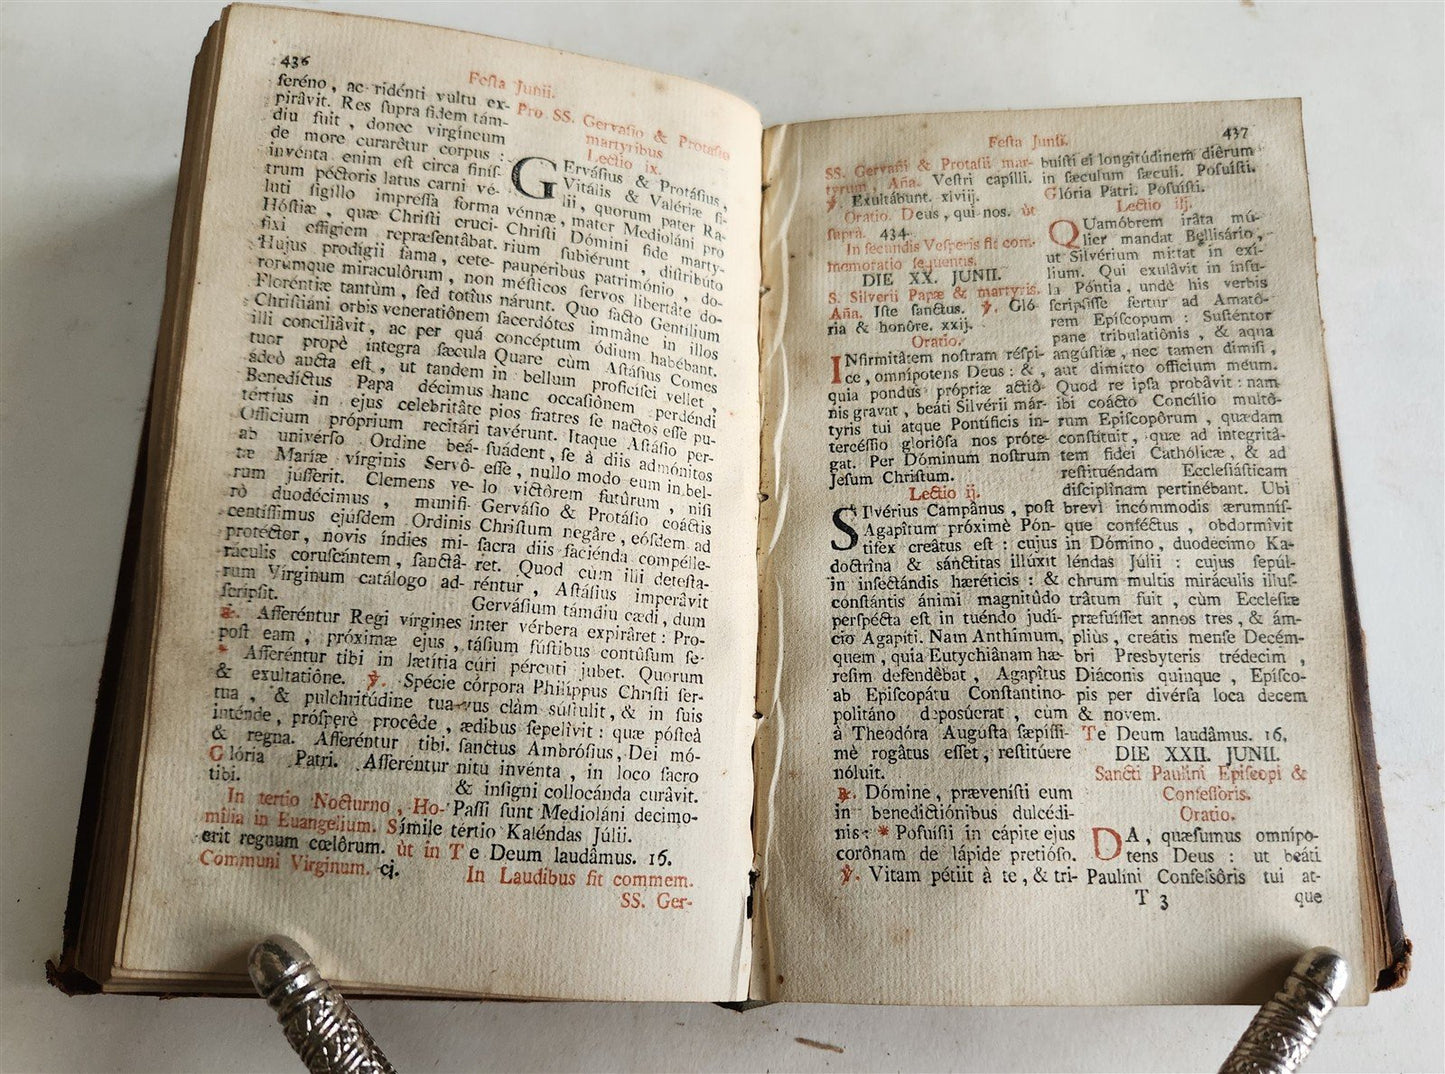 436
Feſta Junii.
ſeréno, ac ridénti vultu ex-
pirâvit. Res ſupra fidem tám-
diu fuit, donec virgíneum
de more curarêtur corpus:
invénta enim eſt circa finíſ-
trum péctoris latus carni vé-
luti ſigillo impreſſa forma
Hóſtiæ, quæ Chriſti cruci-
fixi effígiem repræſentâbat.
Hujus prodígii fama, cete-
rorumque miraculôrum, non
Floréntiæ tantùm, ſed totîus
Chriſtiáni orbis veneratiônem
illi conciliâvit, ac per quá
tuor propè integra ſæcula
ádeò aucta eſt, ut tandem
Benedíctus Papa décimus
tértius in ejus celebritâte
Officium próprium recitári
ab univérſo Ordine beá-
tæ Maríæ vírginis Servô-
rum júſſerit. Clemens ve-
rò duodécimus, munifi-
centíſſimus ejúſdem Ordinis
protéctor, novis índies mi-
ráculis coruſcántem, ſanctâ-
rum Vírginum catálogo ad-
ſcripſit.
℟. Afferéntur Regi vírgines
poſt eam, próximæ ejus,
* Afferéntur tibi in lætítia
& exultatiône. ℣. Spécie
tua, & pulchritúdine tua
inténde, próſperè procêde,
& regna. Afferéntur tibi.
Glória Patri. Afferéntur
tibi.
In tertio Nocturno, Ho-
milia in Euangelium. Símile
erit regnum cœlôrum. ùt in
Communi Virginum. cj.
Pro SS. Gervaſio & Protaſio
martyribus
Lectio ix.
GErváſius & Protáſius,
Vitális & Valériæ fi-
lii, quorum pater Ra-
vénnæ, mater Medioláni pro
Chriſti Dómini fide marty-
rium ſubiérunt, diſtribúto
paupéribus património, do-
méſticos ſervos libertâte do-
nárunt. Quo facto Gentílium
ſacerdótes immâne in illos
concéptum ódium habêbant.
Quare cùm Aſtáſius Comes
in bellum proficíſci vellet,
hanc occaſiônem perdéndi
pios fratres ſe nactos eſſe pu-
tavérunt. Itaque Aſtáſio per-
ſuádent, ſe à diis admónitos
eſſe, nullo modo eum in bel-
lo victôrem futûrum, niſi
Gerváſio & Protáſio coáctis
Chriſtum negâre, eóſdem ad
ſacra diis faciénda compélle-
ret. Quod cùm illi deteſta-
réntur, Aſtáſius imperâvit
Gerváſium támdiu cædi, dum
inter vérbera expirâret: Pro-
táſium fúſtibus contûſum ſe-
cúri pércuti jubet. Quorum
córpora Philíppus Chriſti ſer-
vus clàm súſtulit, & in ſuis
ædibus ſepelîvit: quæ póſteà
ſanctus Ambróſius, Dei mó-
nitu invénta, in loco ſacro
& inſígni collocánda curâvit.
Paſſi ſunt Mediolâni decimo-
tértio Kaléndas Júlii.
Te Deum laudâmus. 16.
In Laudibus fit commem.
SS. Ger-
Feſta Junii.
437
SS. Gervaſii & Protaſii mar-
tyrum, Aña. Veſtri capílli.
℣. Exultábunt. xlviij.
Oratio. Deus, qui nos. ùt
ſuprà. 434.
In ſecundis Veſperis fit com-
memoratio ſequentis.
DIE XX. JUNII.
S. Silverii Papæ & martyris.
Aña. Iſte ſanctus. ℣. Gló-
ria & honôre. xxij.
Oratio.
INfirmitâtem noſtram réſpi-
ce, omnípotens Deus: &,
quia pondus própriæ actiô-
nis gravat, beáti Silvérii már-
tyris tui atque Pontíficis in-
tercéſſio glorióſa nos próte-
gat. Per Dóminum noſtrum
Jeſum Chriſtum.
Lectio ij.
SIlvérius Campânus, poſt
Agapîtum próximè Pón-
tifex creâtus eſt: cujus
doctrîna & sánctitas illúxit
in inſectándis hæréticis: &
conſtántis ánimi magnitúdo
perſpécta eſt in tuéndo judí-
cio Agapîti. Nam Anthimum,
quem, quia Eutychiânam hæ-
reſim defendêbat, Agapîtus
ab Epiſcopátu Conſtantino-
politáno depoſúerat, cùm
à Theodóra Auguſta ſæpíſſi-
mè rogâtus eſſet, reſtitúere
nóluit.
℟. Dómine, præveniſti eum
in benedictiónibus dulcédi-
nis: * Poſuiſti in cápite ejus
corônam de lápide pretióſo.
℣. Vitam pétiit à te, & tri-
buiſti ei longitúdinem diêrum
in ſæculum ſæculi. Poſuiſti.
Glória Patri. Poſuiſti.
Lectio iij.
QUamóbrem irâta mú-
lier mandat Belliſário,
ut Silvérium mittat in exí-
lium. Qui exulâvit in ínſu-
la Póntia, undè his verbis
ſcripſiſſe fertur ad Amatô-
rem Epíſcopum: Suſténtor
pane tribulatiônis, & aqua
angúſtiæ, nec tamen dimíſi,
aut dimítto offícium meum.
Quod re ipſa probâvit: nam
ibi coácto Concílio multô-
rum Epiſcopôrum, quædam
conſtítuit, quæ ad integritâ-
tem fidei Cathólicæ, & ad
reſtituéndam Eccleſiáſticam
diſciplînam pertinébant. Ubi
brevì incómmodis ærumníſ-
que conféctus, obdormîvit
in Dómino, duodecimo Ka-
léndas Júlii: cujus ſepúl-
chrum multis miráculis illuſ-
trâtum fuit, cùm Eccleſiæ
præfuíſſet annos tres, & ám-
pliùs, creátis menſe Decém-
bri Presbyteris trédecim,
Diáconis quinque, Epíſco-
pis per divérſa loca decem
& novem.
Te Deum laudâmus. 16.
DIE XXII. JUNII.
Sancti Paulini Epiſcopi &
Confeſſoris.
Oratio.
DA, quæſumus omnípo-
tens Deus: ut beáti
Paulíni Confeſſôris tui at-
T 3
que